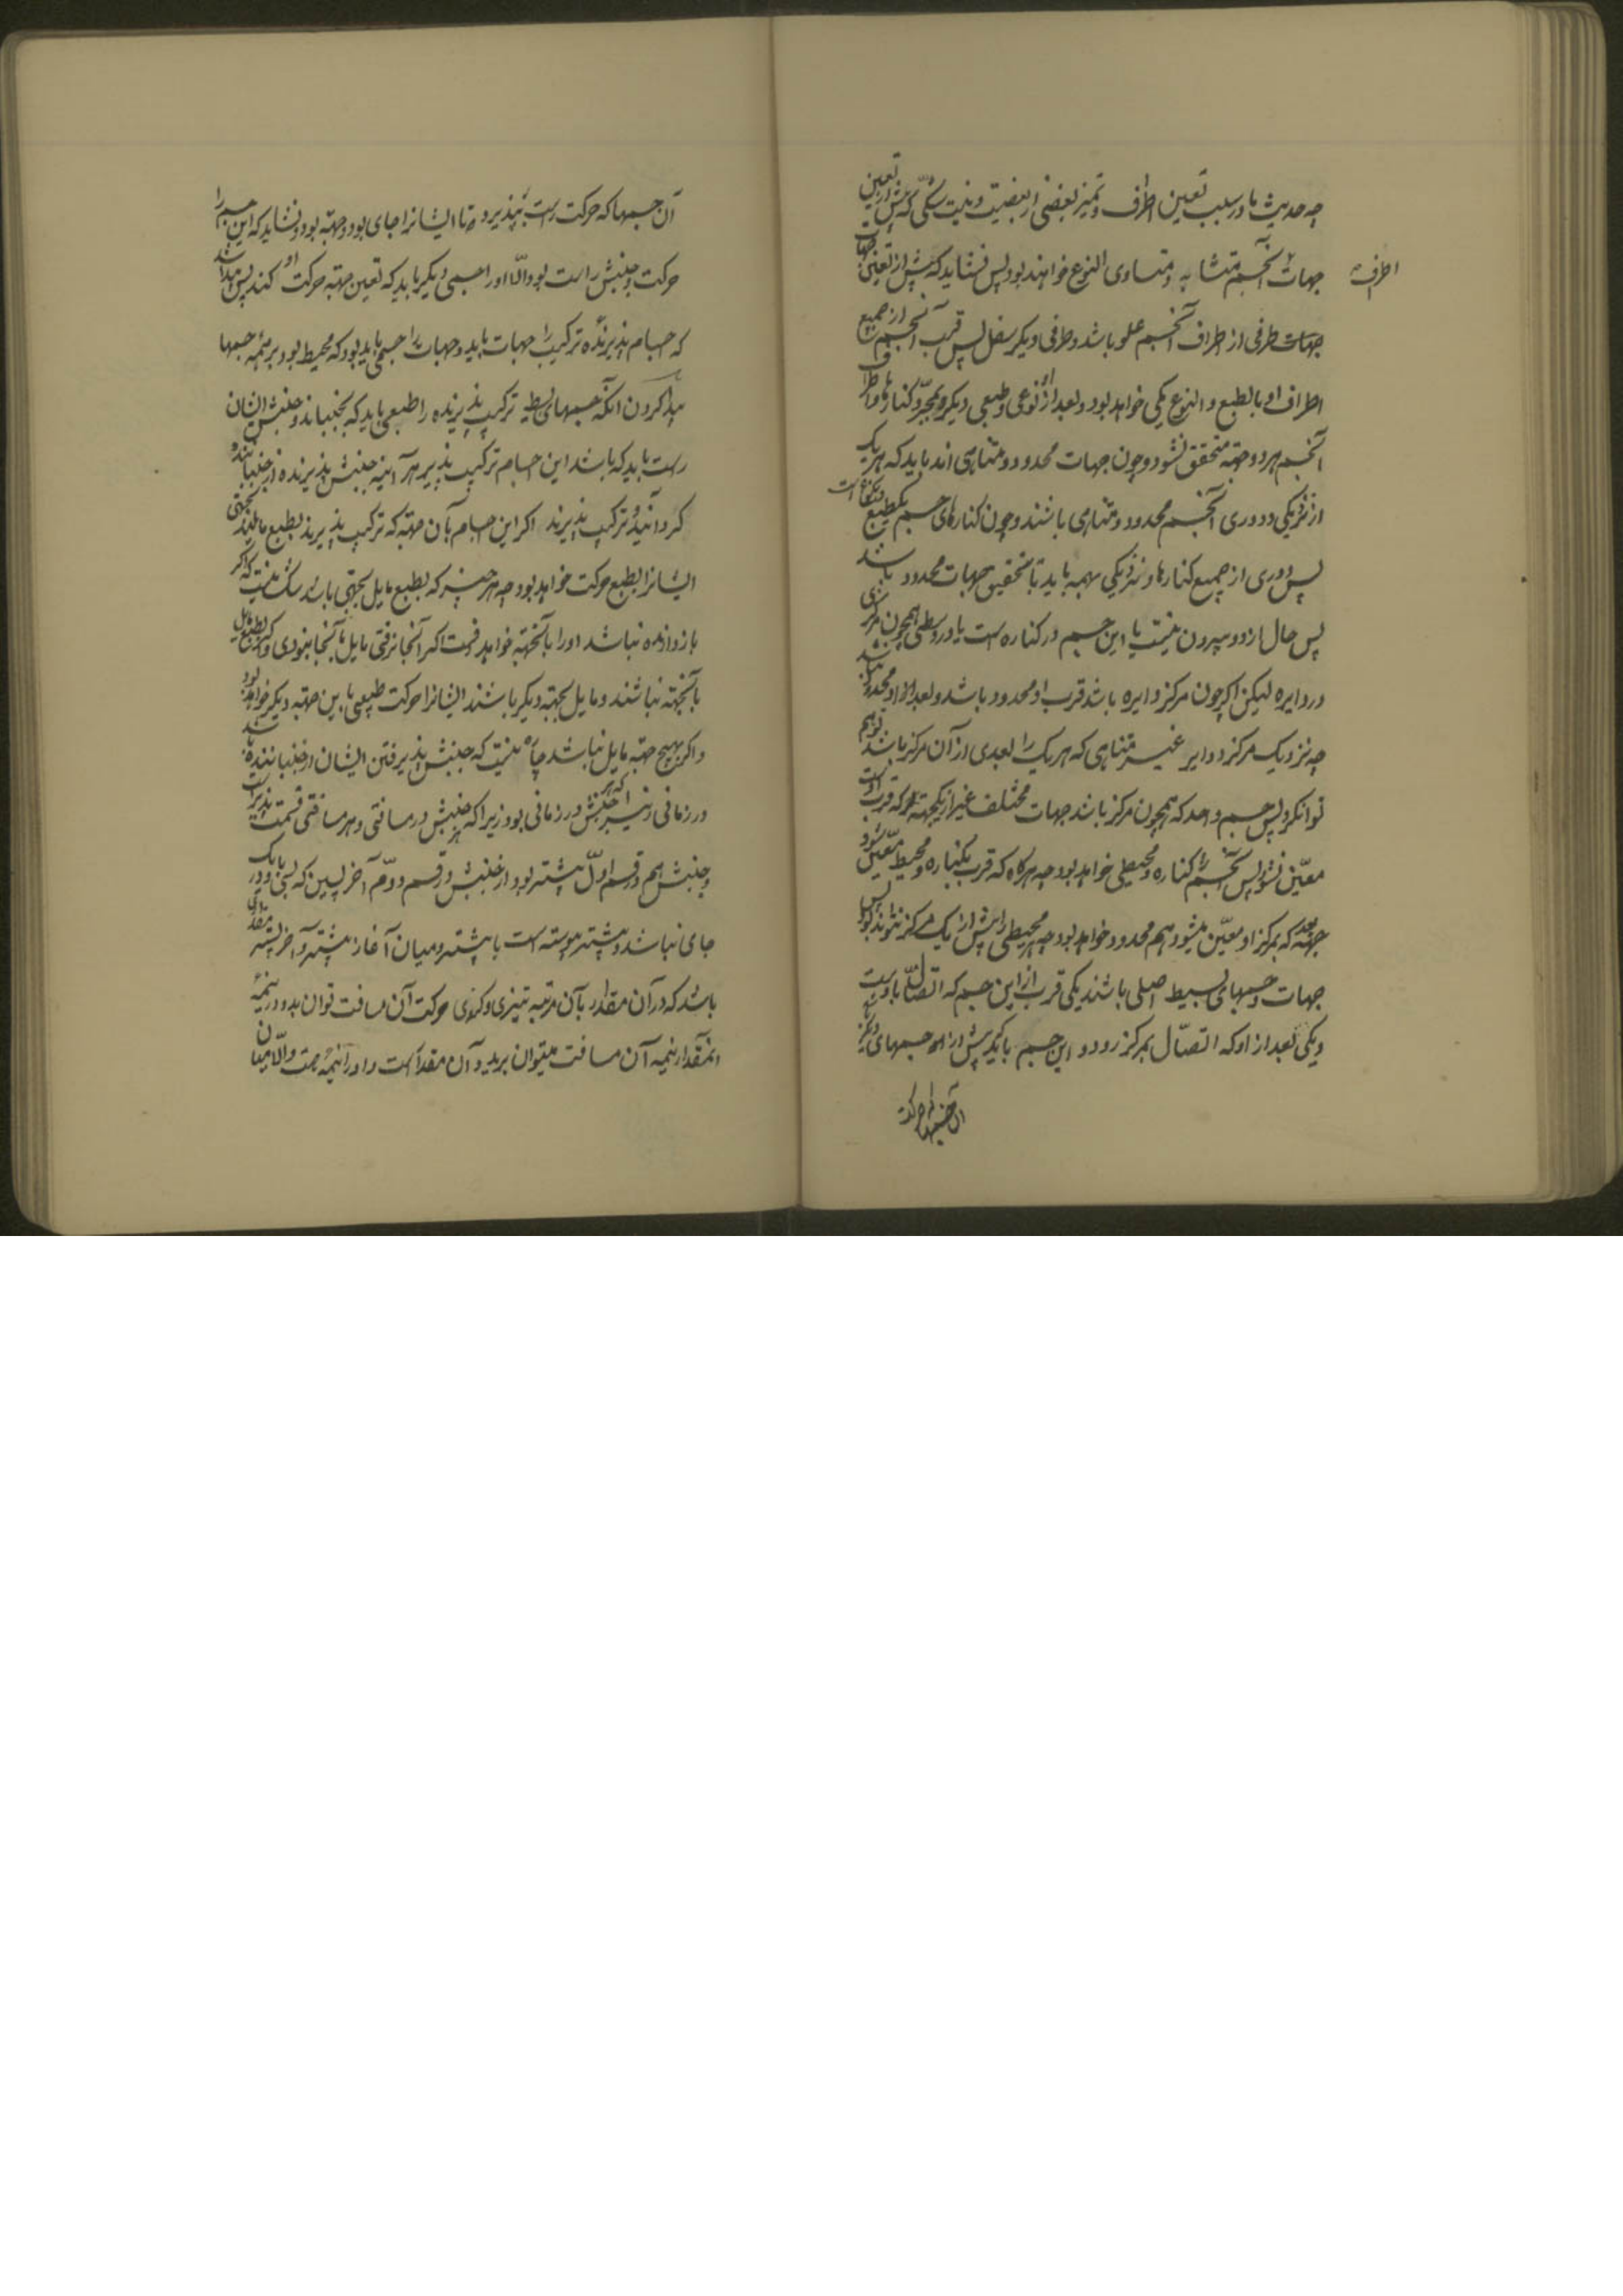 چه حدیث ما در سبب تعین اطراف و تمیز بعضی از بعضیت و نیست شکی که پیش از تعین
جهات آنجسم متشابه و متساوی النوع خواهند بود پس نشاید که پیش از تعین جهات
اطراف
جهات طرفی از اطراف آنجسم علو باشد و طرفی دیکر سفل پس قرب آنجسم از جمیع
اطراف او بالطبع و النوع یکی خواهد بود و بعد از او نوعی و طبعی دیکر و بمجرد کنارها و اطراف
آنجسم هر دو جهته متحقق نشود و چون جهات محدود و متناهی اند باید که هر یک
از نزدیکی و دوری آنجسم محدود و متناهی باشند و چون کنارهای جسم یکطبع
پس دوری از جمیع کنارها و نزدیکی بهمه باید تا تحقیق جهات محدود باشد
پس حال از دو بیرون نیست یا این جسم در کناره است یا در وسطی همچون مرکزی
در دایره لیکن اکر چون مرکز دایره باشد قرب او محدود باشد و بعد از او محدود نباشد
چه نزدیک مرکز دوایر غیر متناهی که هر یک را بعدی از آن مرکز باشد توهم
توانکرد پس جسم واحد که همچون مرکز باشد جهات مختلف غیر از یکجهته که قرب اوست
معین نشود پس آنجسم را کناره و محیطی خواهد بود چه هرکاه که قرب بکناره و محیط معین شود
جهته بعد که بمرکز او معین میشود هم محدود خواهد بود چه هر محیطی را بیش از یک مرکز نتواند بود پس
جهات و جسمهای بسیط اصلی باشند یکی قرب از این جسم که اتصال باوست
و یکی بعد از او که اتصال بمرکز رود و این جسم باید که پیش از همه جسمهای دیکر باشد
آن جسمها که حرکت
آن جسمها که حرکت راست بپذیرد تا ایشانرا جای بود و جهته بود و نشاید که این جسم را
حرکت و جنبش راست بود و الا او را جسمی دیکر باید که تعین جهته حرکت او کند پس پیدا شد
که اجسام پذیرنده ترکیب را جهات باید و جهات را جسمی باید بود که محیط بود بر همه جسمها
پیدا کردن آنکه جسمهای بسیط ترکیب پذیرنده را طبعی باید که بجنباند و جنبش ایشان
راست باید که باشد این اجسام ترکیب پذیر هر آینه جنبش پذیرنده از جنباننده
کردانید و ترکیب پذیرند اکر این اجسام بآن جهته که ترکیب پذیرند بطبع مایلند بجهتی
ایشانرا بطبع حرکت خواهد بود چه هر چیز که بطبع مایل بجهتی باشد شک نیست که اکر
بازدارنده نباشد او را بآنجهته خواهد رفت اکر آنجا نرفتی مایل بآنجا نبودی و اکر بطبع مایل
بآنجهته نباشند و مایل بجهته دیکر باشند ایشانرا حرکت طبیعی باین جهته دیکر خواهد بود
و اکر بهیچ جهته مایل نباشد چاره نیست که جنبش پذیرفتن ایشان از جنباننده باشد
در زمانی زیرا که هر جنبش در زمانی بود زیرا که جنبش در مسافتی و هر مسافتی قسمت پذیر است
و جنبش هم در قسم اول پیشتر بود از جنبش در قسم دوم آخر پسین که پس با یک و در
جای نباشد و پیشتر پیوسته است با پیشتر و میان آغاز پیشتر و آخر پستر مقداری
باشد که در آن مقدار بآن مرتبه تیزی و کندی حرکت آن مسافت توان برید و در نیمه
آنمقدار نیمه آن مسافت میتوان برید و آن مقدار است و او را نیمه هست و الا میان